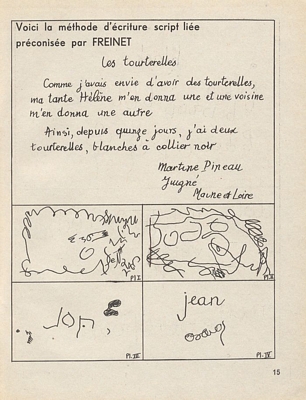 Voici la méthode d'écriture script liée
préconisée par FREINET
Les tourterelles
Comme j'avais envie d'avoir des tourterelles,
ma tante Hélène m'en donna une et une voisine
m'en donna une autre
Ainsi, depuis quinze jours, j'ai deux
tourterelles, blanches à collier noir
Martine Pineau
Juigné
Maine et Loire
Pl I
jean
Pl. III
Pl. IV
15